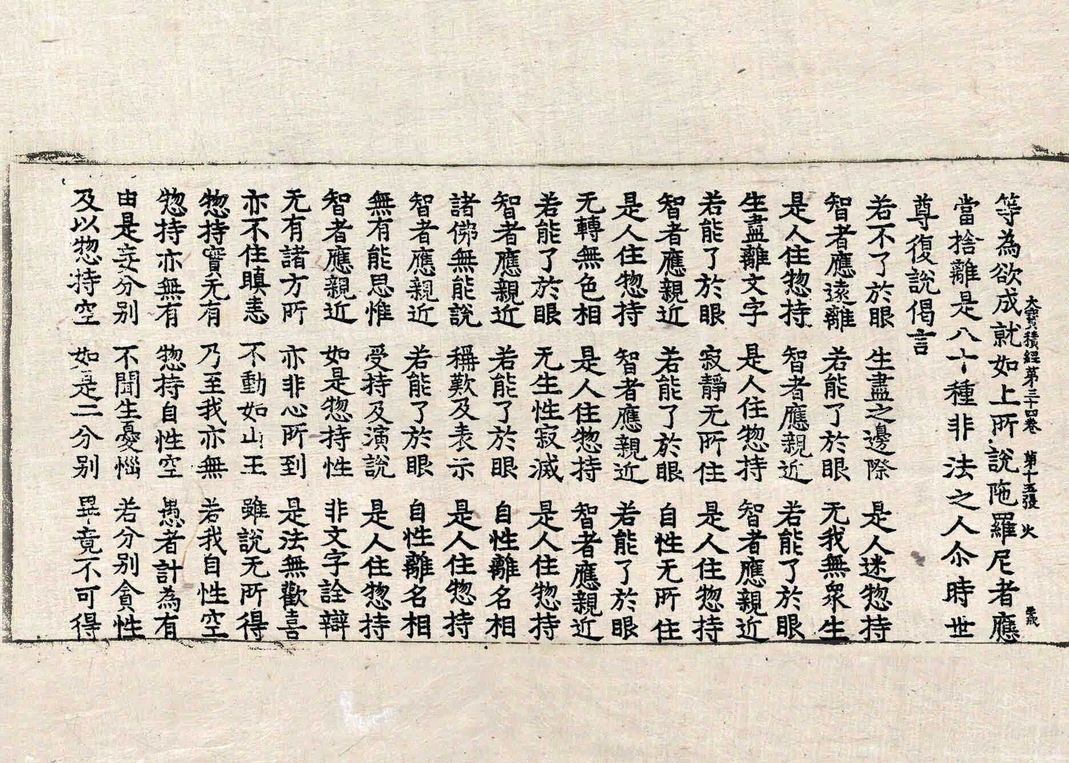 大寶積経第三十四卷 第十五張 火
等為欲成就如上所說陁羅尼者應
當捨離是八十種非法之人尒時世
尊復說偈言
若不了於眼 生盡之邊際 是人迷惣持
智者應遠離 若能了於眼 无我無衆生
是人住惣持 智者應親近 若能了於眼
生盡離文字 是人住惣持 智者應親近
若能了於眼 寂靜无所住 是人住惣持
智者應親近 若能了於眼 自性无所住
是人住惣持 智者應親近 若能了於眼
無轉無色相 是人住惣持 智者應親近
若能了於眼 无生性寂滅 是人住惣持
智者應親近 若能了於眼 自性離名相
諸佛無能說 稱歎及表示 是人住惣持
智者應親近 若能了於眼 自性離名相
無有能思惟 受持及演說 是人住惣持
智者應親近 如是惣持性 非文字詮辯
无有諸方所 亦非心所到 是法無歡喜
亦不住瞋恚 不動如山王 雖說无所得
惣持實无有 乃至我亦無 若我自性空
惣持亦無有 惣持自性空 愚者計為有
由是妄分別 不聞生憂惱 若分別貪性
及以惣持空 如是二分別 畢竟不可得